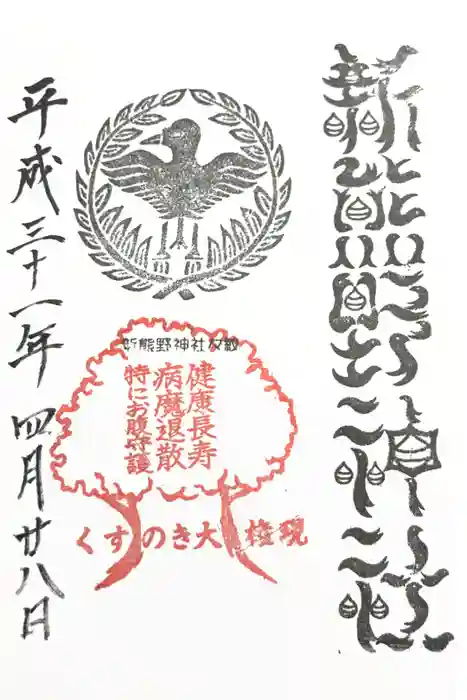 新熊野神社
新熊野神社文織
健康長寿
病魔退散
特にお腹守護
くすのき大権現
平成三十一年 四月廿八日